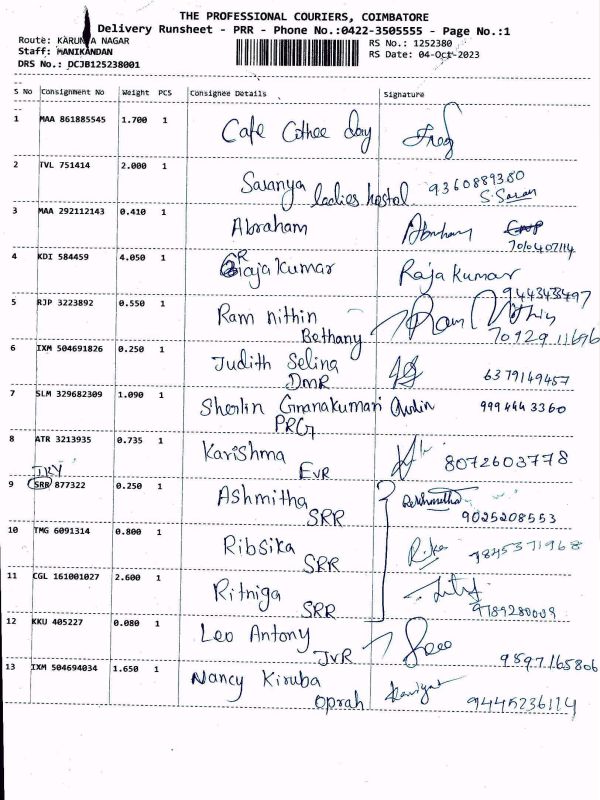 THE PROFESSIONAL COURIERS, COIMBATORE
Delivery Runsheet - PRR - Phone No.:0422-3505555 - Page No.:1
Route: KARUNYA NAGAR
RS No.: 1252380
Staff: MANIKANDAN
RS Date: 04-Oct-2023
DRS No.: DCJB125238001
S No Consignment No Weight PCS Consignee Details Signature
1 MAA 861885545 1.700 1 Cafe Coffee day
2 TVL 751414 2.000 1 Saranya ladies hostel 9360889380
S. Saran
3 MAA 292112143 0.410 1 Abraham Abraham
4 KDI 584459 4.050 1 Rajakumar Raja kumar
9443438497
5 RJP 3223892 0.550 1 Ram nithin Ram Nithin
Bethany 70929 11696
6 IXM 504691826 0.250 1 Judith Selina
DMR 6379149457
7 SLM 329682309 1.090 1 Sherlin Gnanakumari
PRG 999 444 3360
8 ATR 3213935 0.735 1 Karishma
EVR 8072603778
9 SRR 877322 0.250 1 Ashmitha
SRR 9025208553
10 TMG 6091314 0.800 1 Ribsika
SRR 9845371968
11 CGL 161001027 2.600 1 Ritniga
SRR 9789280009
12 KKU 405227 0.080 1 Leo Antony
JVR 9597165806
13 IXM 504694034 1.650 1 Nancy Kiruba
Oprah 9445236114